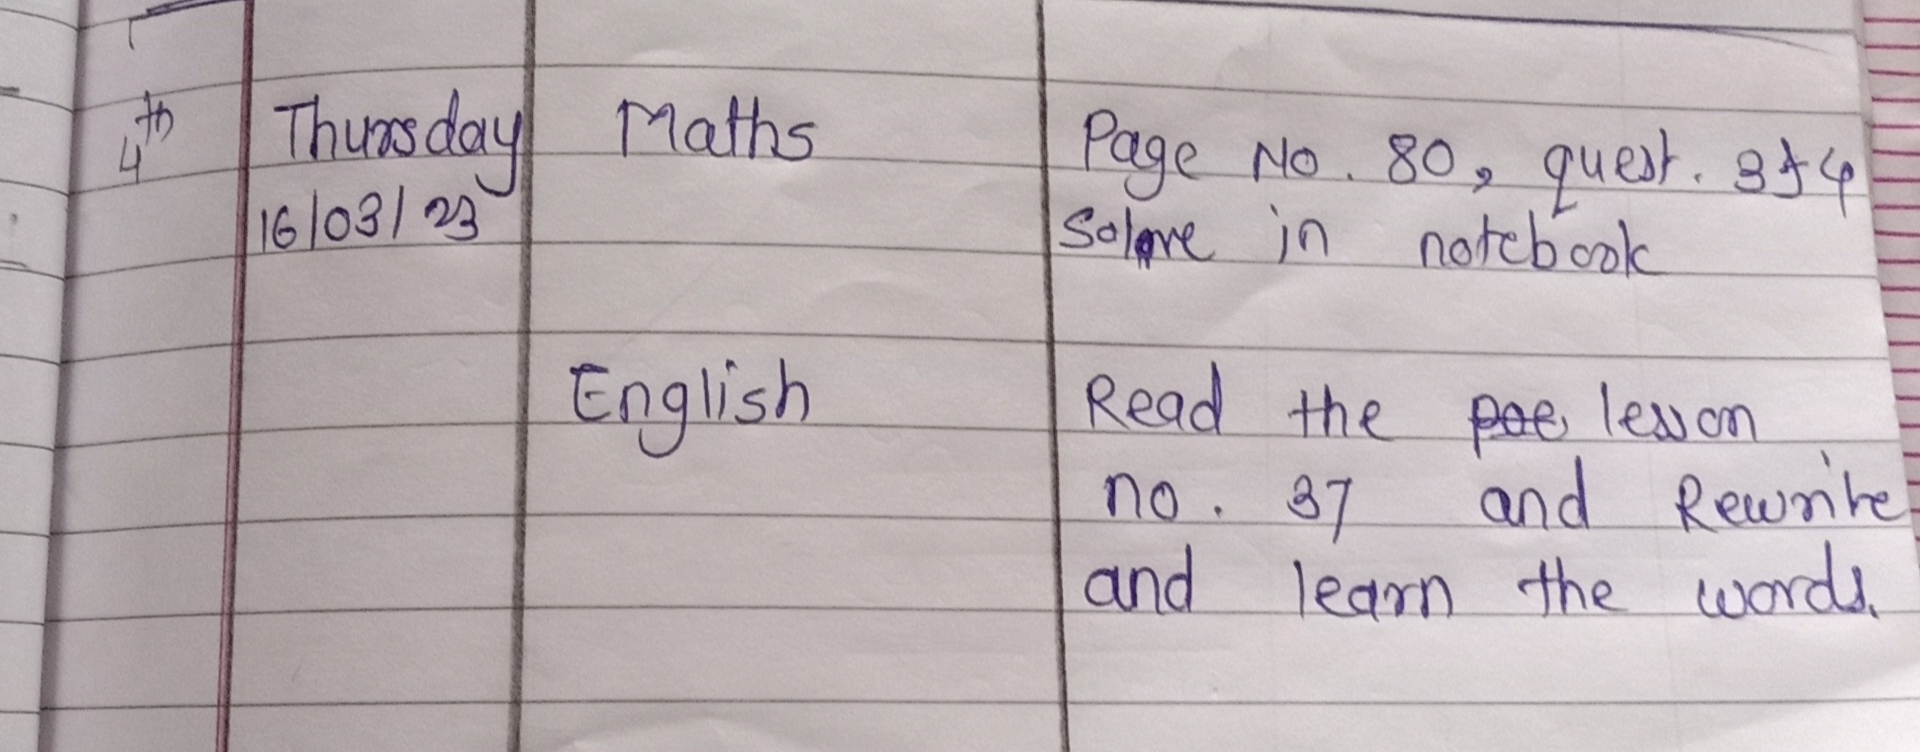 4th Thursday Maths Page No. 80, quest. 3 & 4
16/03/23 Solve in notebook
English Read the lesson
no. 37 and Rewrite
and learn the words.